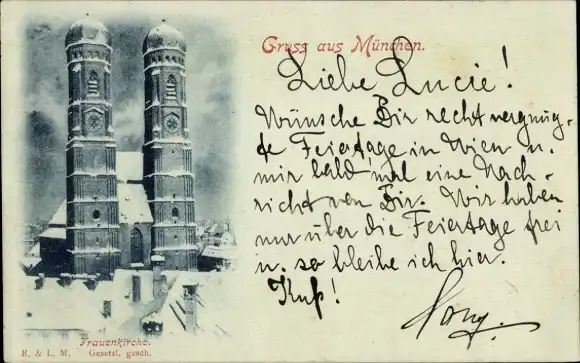 Gruss aus München.
Liebe Lucie!
Wünsche Dir recht vergnüg-
te Feiertage in Wien u.
mir bald mal eine Nach-
richt von Dir. Wir haben
nur über die Feiertage frei
u. so bleibe ich hier.
Kuß!
Frauenkirche.
R. & L. M. Gesetzl. gesch.